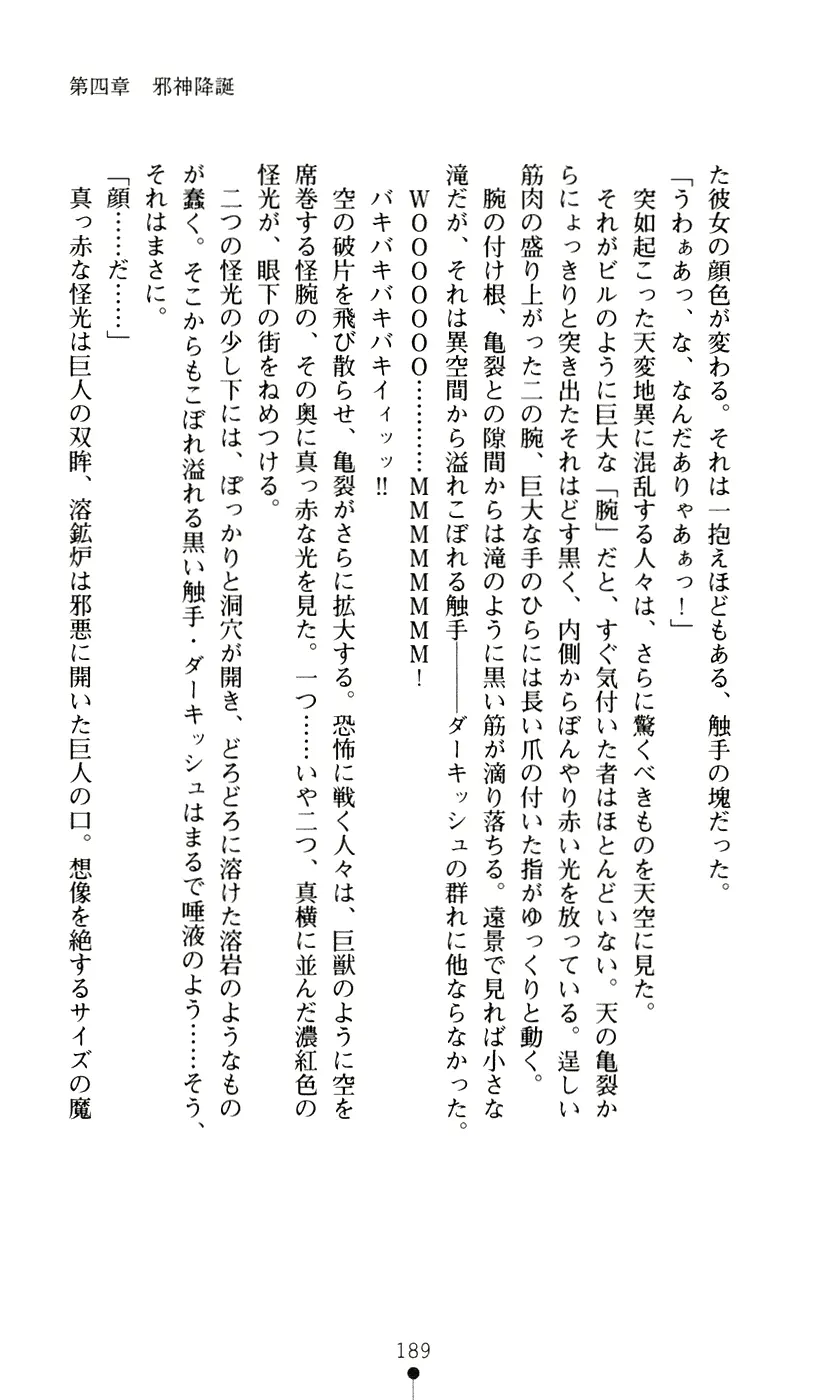 第四章　邪神降誕
た彼女の顔色が変わる。それは一抱えほどもある、触手の塊だった。
「うわぁあっ、な、なんだありゃあぁっ！」
　突如起こった天変地異に混乱する人々は、さらに驚くべきものを天空に見た。
　それがビルのように巨大な「腕」だと、すぐ気付いた者はほとんどいない。天の亀裂か
らにょっきりと突き出たそれはどす黒く、内側からぼんやり赤い光を放っている。逞しい
筋肉の盛り上がった二の腕、巨大な手のひらには長い爪の付いた指がゆっくりと動く。
　腕の付け根、亀裂との隙間からは滝のように黒い筋が滴り落ちる。遠景で見れば小さな
滝だが、それは異空間から溢れこぼれる触手――ダーキッシュの群れに他ならなかった。
　ＷＯＯＯＯＯＯＯ…………ＭＭＭＭＭＭＭＭ！
　バキバキバキバキイィッッ!!
　空の破片を飛び散らせ、亀裂がさらに拡大する。恐怖に戦く人々は、巨獣のように空を
席巻する怪腕の、その奥に真っ赤な光を見た。一つ……いや二つ、真横に並んだ濃紅色の
怪光が、眼下の街をねめつける。
　二つの怪光の少し下には、ぽっかりと洞穴が開き、どろどろに溶けた溶岩のようなもの
が蠢く。そこからもこぼれ溢れる黒い触手・ダーキッシュはまるで唾液のよう……そう、
それはまさに。
「顔……だ……」
　真っ赤な怪光は巨人の双眸、溶鉱炉は邪悪に開いた巨人の口。想像を絶するサイズの魔
189